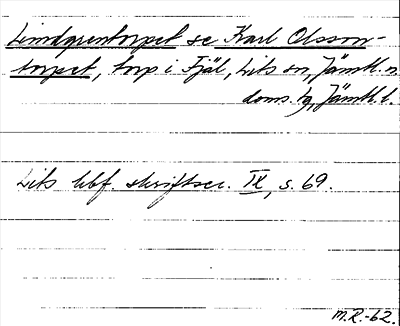 Lindgrentorpet se Karl Olsson-
torpet, torp i Fjäl, Lits sn, Jämtl. n.
doms. tg, Jämtl. l.
Lits hbf. skriftser. IX, s. 69.
M.R.-62.